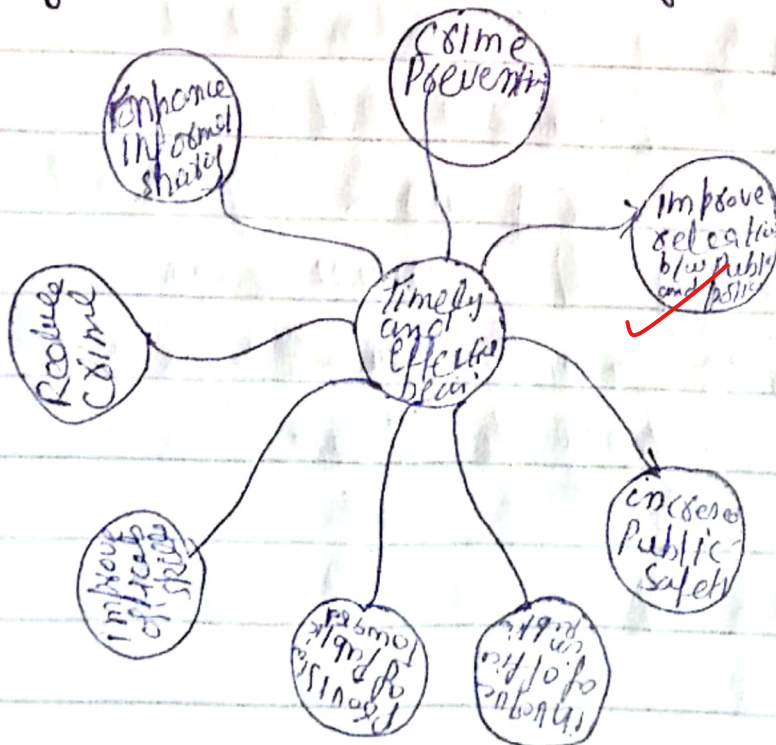 Crime
Prevention
Enhance
Informat
sharing
Improve
relation
b/w Public
and police
Timely
and
effective
Reduce
Crime
increase
Public
Safety
Improve
skills
Provision
of Public
in
of office
Public